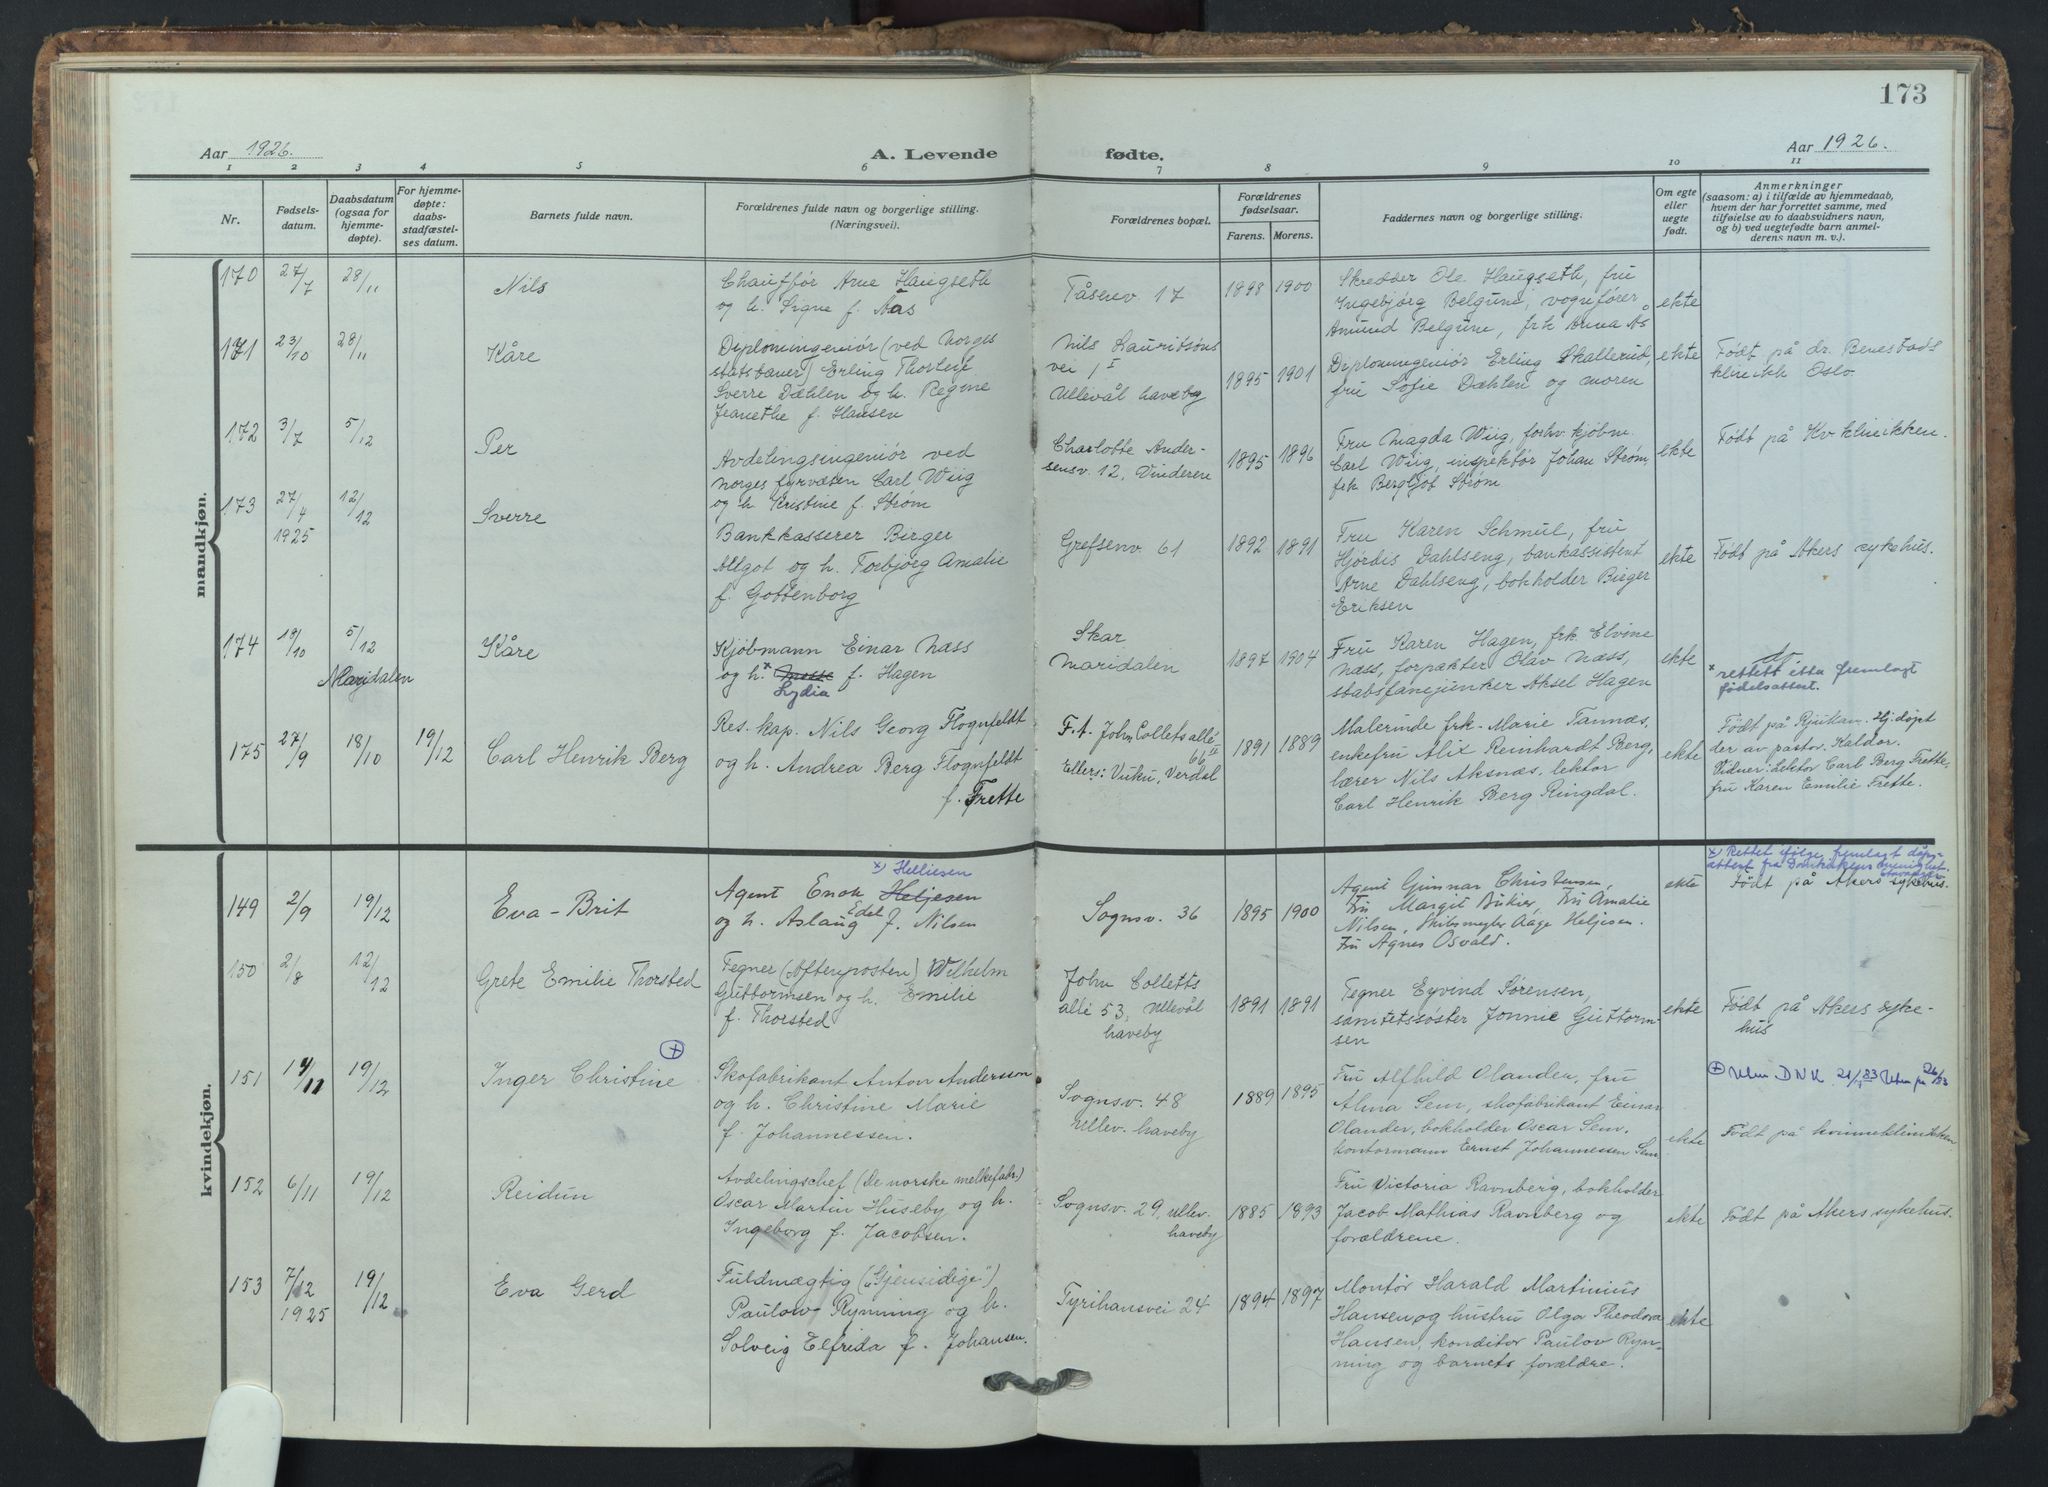 173
Aar 1926.
A. Levende fødte.
Aar 1926.
1 2 3 4 5 6 7 8 9 10 11
Nr.
Fødsels-
datum.
Daabsdatum
(ogsaa for
hjemme-
døpte).
For hjemme-
døpte:
daabs-
stadfæstel-
ses datum.
Barnets fulde navn.
Forældrenes fulde navn og borgerlige stilling.
(Næringsvei).
Forældrenes bopæl.
Forældrenes
fødselsaar.
Farens. Morens.
Faddernes navn og borgerlige stilling.
Om egte
eller
uegte
født.
Anmerkninger
(saasom: a) i tilfælde av hjemmedaab,
hvem der har forrettet samme, med
tilføielse av to daabsvidners navn,
og b) ved uegtefødte barn anmel-
derens navn m. v.).
mandkjøn.
170 27/7 28/11 Nils
Chauffør Arne Haugseth
og h. Signe f. Aas
Tåsenv 17
1898 1900
Skredder Ole Haugseth, fru
Ingebjørg Belgune, vognfører
Amund Belgune, frk Anna Ås
ekte
171 23/10 28/11 Kåre
Diplomingeniør (ved Norges
statsbaner) Erling Thorleif
Sverre Dæhlen og h. Regine
Jeanethe f. Hansen
Nils Lauritsøns
vei 1 I
Ullevål haveby
1895 1901
Diplomingeniør Erling Skallerud,
fru Sofie Dæhlen og moren
ekte
Født på dr. Benestads
klinikk Oslo.
172 3/7 5/12 Per
Avdelingsingeniør ved
Norges fyrvæsen Carl Wiig
og h. Kristine f. Strøm
Charlotte Ander-
sensv. 12, Vinderen
1895 1896
Fru Magda Wiig, forhv. kjøbm.
Carl Wiig, inspektør Johan Strøm,
frk Bergljot Strøm
ekte
Født på Kv klinikken.
173 27/4 1925 12/12 Sverre
Bankkasserer Birger
Algot og h. Torbjørg Amalie
f. Gottenborg
Grefsenv. 61
1892 1891
Fru Karen Schmul, fru
Hjørdis Dahlseng, bankassistent
Arne Dahlseng, bokholder Birger
Eriksen
ekte
Født på Akers sykehus.
174 18/10 5/12 Kåre
Maridalen
Kjøbmann Einar Næss
og h.* f. Hagen
Lydia
Skar
Maridalen
1897 1904
Fru Karen Hagen, frk. Elvine
Næss, forpakter Olav Næss,
stabsfanejunker Aksel Hagen
ekte
* rettett etter fremlagt
fødelsattest.
175 27/9 18/10 19/12 Carl Henrik Berg
Res. kap. Nils Georg Flognfeldt
og h. Andrea Berg Flognfeldt
f. Frette
F.t. John Colletsallé
66 II
Ellers: Vuku, Verdal
1891 1889
Malerinde frk. Marie Tannæs,
enkefru Alix Reinhardt Berg,
lærer Nils Aksnæs, lektor
Carl Henrik Berg Ringdal.
ekte
Født på Rjukan. Hj.døpt
der av pastor Kaldor.
Vidner: Lektor Carl Berg Frette,
fru Karen Emilie Frette.
kvindekjøn.
149 2/9 19/12 Eva-Brit
x) Helliesen
Agent Enok Heljesen
og h. Aslaug Edel f. Nilsen
Sognsv. 36
1895 1900
Agent Gunnar Christensen,
Fru Margit Bükier, Fru Amalie
Nilsen, Skibsmegler Aage Heljesen.
Fru Agnes Osvald.
ekte
x) Rettet ifølge fremlagt dåps-
attest fra Domkirkens menighet
Stavanger
Født på Akers sykehus.
150 2/8 12/12 Grete Emilie Thorsted
Tegner (Aftenposten) Wilhelm
Guttormsen og h. Emilie
f. Thorsted
John Colletts
alle 53, Ullevål
haveby
1891 1891
Tegner Eyvind Sørensen,
sanitetssøster Jonnie Guttorm-
sen
ekte
Født på Akers syke-
hus
151 14/11 19/12 Inger Christine
Skofabrikant Anton Andersson
og h. Christine Marie
f. Johannessen.
Sognsv. 48
Ullev. haveby
1889 1895
Fru Alfhild Olander, fru
Alma Sem, skofabrikant Einar
Olander, bokholder Oscar Sem,
kontormann Ernst Johannessen Sem
ekte
Født på kvinneklinikken
152 6/11 19/12 Reidun
Avdelingschef (De norske melkefabr.)
Oscar Martin Huseby og h.
Ingeborg f. Jacobsen.
Sognsv. 29, Ullev.
haveby
1885 1893
Fru Victoria Ravnberg, bokholder
Jacob Mathias Ravnberg og
forældrene.
ekte
Født på Akers sykehus.
153 7/12 1925 19/12 Eva Gerd
Fuldmægtig ("Gjensidige")
Paulow Rynning og h.
Solveig Elfrida f. Johansen.
Tyrihansvei 24
1894 1897
Montør Harald Martinius
Hansen og hustru Olga Theodora
Hansen, konditor Paulov Ryn-
ning og barnets forældre.
ekte